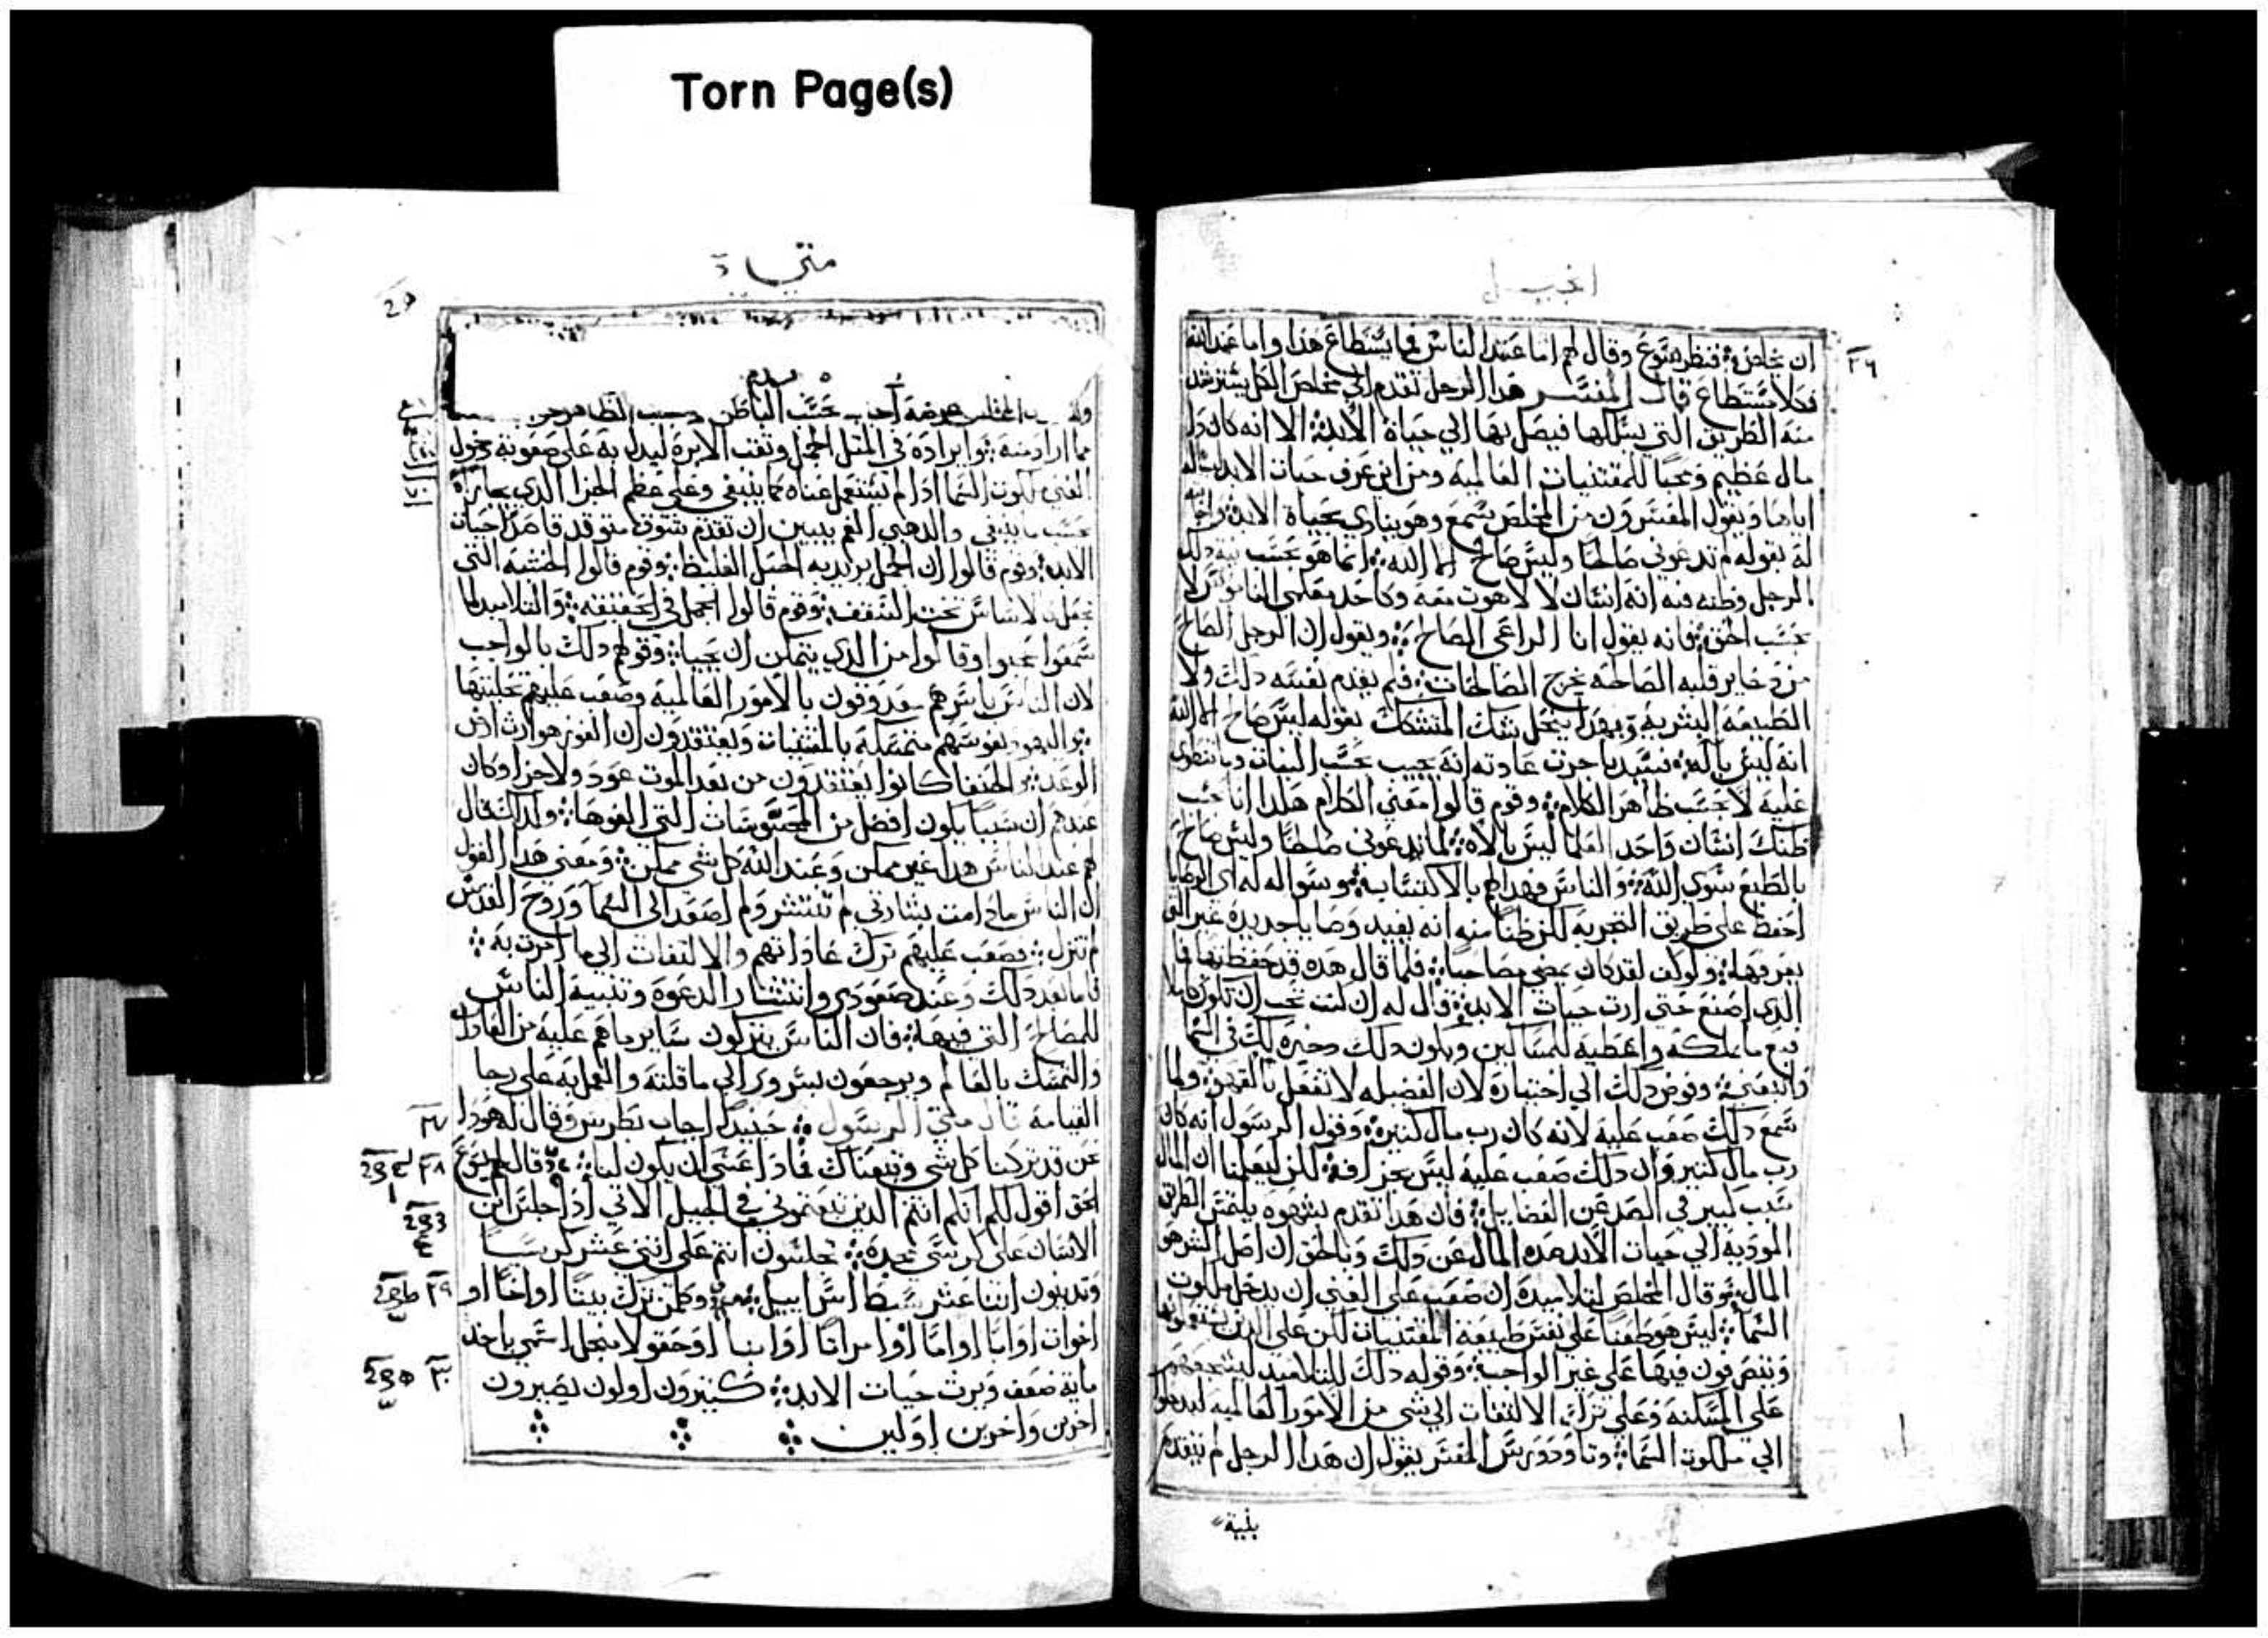 Torn Page(s)
انجيل
٢٦
ان يخلص فنظر يسوع وقال لهم اما عند الناس فما يستطاع هذا واما عند الله
فكلا يستطاع قال المفسر هذا الرجل تقدم الي مخلص الكل يسترشد
منه الطريق التي يسلكها فيصل بها الي حياة الابد الا انه كان ذا
مال عظيم ومحبا للمقتنيات العالمية ومن اين عرف حيات الابد
اياها ويقول المفسرون من المخلص يسمع وهو ينادي بحياة الابد
له بقوله لم تدعوني صالحا وليس صالح الا الله انما هو بحسب نية ذلك
الرجل وظنه فيه انه انسان لا لاهوت معه وكاحد معلمي الناموس لا
بحسب الحق فانه يقول انا الراعي الصالح ويقول ان الرجل الصالح
من ذخاير قلبه الصالحة يخرج الصالحات فلم يعدم نفسه ذلك ولا
الطبيعة البشرية وبهذا ينحل شك المتشكك بقوله ليس صالح الا الله
انه ليس باله فسيدنا جرت عادته انه يجيب بحسب النيات وما تنطوي
عليه لا بحسب ظاهر الكلام وقوم قالوا معني الكلام هكذا انا بحسب
ظنك انسان واحد العلما ليس بالاه لماذا تدعوني صالحا وليس صالح
بالطبع سوي الله والناس فهذا لهم بالاكتساب وسواله له اي الوصايا
احفظ علي طريق التجربة لكن ظنا منه انه يفيد وصايا جديدة غير التي
يعرفها ولو لم لقد كان يمضي مصاحبا فلما قال هذه قد حفظتها فما
الذي اصنع حتي ارث حيات الابد قال له ان كنت تحب ان تكون كاملا
فبع ما تملكه واعطيه للمساكين ويكون ذلك ذخيرة لك في السما
واتبعني وفوض ذلك الي اختياره لان الفضيله لا تفعل بالقهر ولما
سمع ذلك صعب عليه لانه كان رب مال كثير وقول الرسول انه كان
رب مال كثير وان ذلك صعب عليه ليس بجزافة لكن ليعلمنا ان المال
سبب كبير في الصد عن الفضايل فان هذا تقدم بشهوه يلتمس الطريق
المودية الي حيات الابد صده المال عن ذلك وبالحق ان اصل الشر هو
المال وقال المخلص لتلاميذه ان صعب علي الغني ان يدخل ملكوت
السما ليس هو طعنا علي نفس طبيعة المقتنيات لكن علي الذين
ويتصرفون فيها علي غير الواجب وقوله ذلك للتلاميذ
علي المسكنة وعلي ترك الالتفات الي شي من الامور العالميه
الي ملكوت السما وتاودورس المفسر يقول ان هذا الرجل لم يتقدم
بنية
متي
بحسب الباطن
مما اراد منه وايراده في المثل الجمل وثقب الابرة ليدل به علي صعوبة دخول
الغني ملكوت السما اذا لم يستعمل غناه كما ينبغي وعلي عظم الجزا الذي
بحسب ما ينبغي والذهبي الفم يبين ان تقدم بشوق متوقد قاصدا حيات
الابد وقوم قالوا ان الجمل يريد به الحبل الغليظ وقوم قالوا الخشبه التي
تجعل الاساس تحت السقف وقوم قالوا الجمل في الحقيقه والتلاميذ لما
سمعوا عجبوا وقالوا من الذي يتمكن ان يحيا وقولهم ذلك بالواجب
لان الناس باسرهم بالامور العالميه وصعب عليهم
نفوسهم متمسكة بالمقتنيات ويعتقدون ان الفوز هو ارث ارض
الوعد والحنفا كانوا يعتقدون من بعد الموت عود ولا جزا وكان
عندهم ان سببا يكون افضل من المحسوسات التي الفوها
لهم عند الناس هذا غير ممكن وعند الله كل شي ممكن ومعني هذا القول
ان الناس ما دامت بشارتي لم تنتشر ولم اصعد الي السما وروح القدس
لم تنزل فصعب عليهم ترك عاداتهم والالتفات الي ما امرت به
فاما بعد ذلك وعند صعودي وانتشار الدعوة وتنبيه الناس
للمصالح التي فيها فان الناس يتركون ساير ما هم عليه من العادات
والتمسك بالعالم ويرجعون بسرور الي ما قلته والعمل به علي رجا
القيامة قال متي الرسول حينيذ اجاب بطرس وقال له هوذا
٢٧
نحن قد تركنا كل شي وتبعناك فماذا عسي ان يكون لنا قال لهم يسوع
٢٨
الحق اقول لكم انكم انتم الذين تبعتموني في الجيل الاتي اذا جلس ابن
الانسان علي كرسي مجده تجلسون انتم علي اثني عشر كرسيا
وتدينون اثنا عشر سبط اسراييل وكلمن ترك بيتا او اخا او
٢٩
اخوات او ابا او اما او امراتا او ابنا او حقولا من اجل اسمي ياخذ
ماية ضعف ويرث حيات الابد كثيرون اولون يصيرون
٣٠
اخرين واخرين اولين